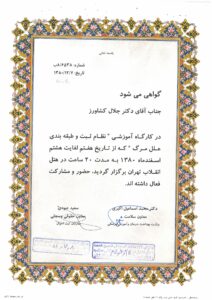 باسمه تعالی
شماره: ۶۵۳۸/ف‌ب
تاریخ: ۱۳۸۰/۱۲/۷
گواهی می شود
جناب آقای دکتر جلال کشاورز
در کارگاه آموزشی " نظام ثبت و طبقه بندی
علل مرگ " که از تاریخ هفتم لغایت هشتم
اسفندماه ۱۳۸۰ به مدت ۲۰ ساعت در هتل
انقلاب تهران برگزار گردید، حضور و مشارکت
فعال داشته اند.
دکتر محمد اسماعیل اکبری
معاون سلامت
وزارت بهداشت، درمان و آموزش پزشکی
سعید
معاون حقوقی و سجلی
سازمان ثبت احوال